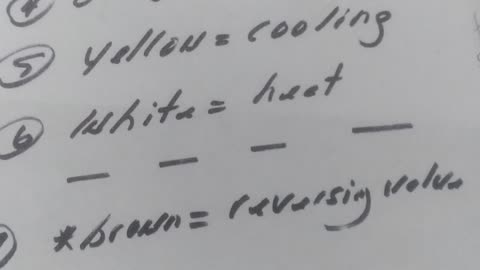 5 yellow = cooling
6 white = heat
*brown = reversing valve